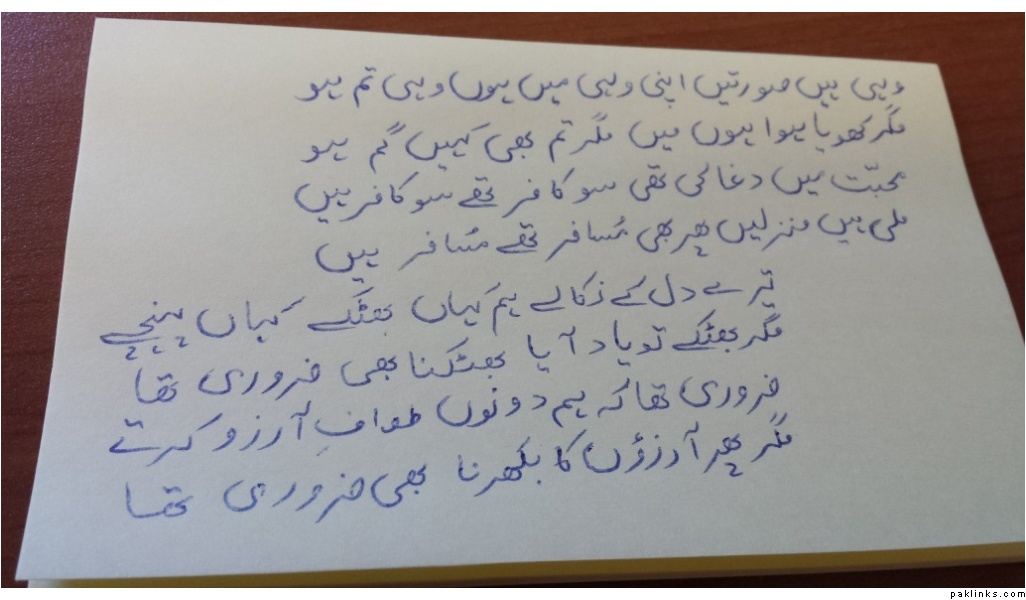 وہی ہیں صورتیں اپنی وہی میں ہوں وہی تم ہو
مگر کھویا ہوا ہوں میں مگر تم بھی کہیں گم ہو
محبّت میں دغا کی تھی سو کافر تھے سو کافر ہیں
ملی ہیں منزلیں پھر بھی مُسافر تھے مُسافر ہیں
تیرے دل کے نکالے ہم کہاں بھٹکے کہاں پہنچے
مگر بھٹکے تو یاد آیا بھٹکنا بھی ضروری تھا
ضروری تھا کہ ہم دونوں طوافِ آرزو کرتے
مگر پھر آرزوؤں کا بکھرنا بھی ضروری تھا
paklinks.com